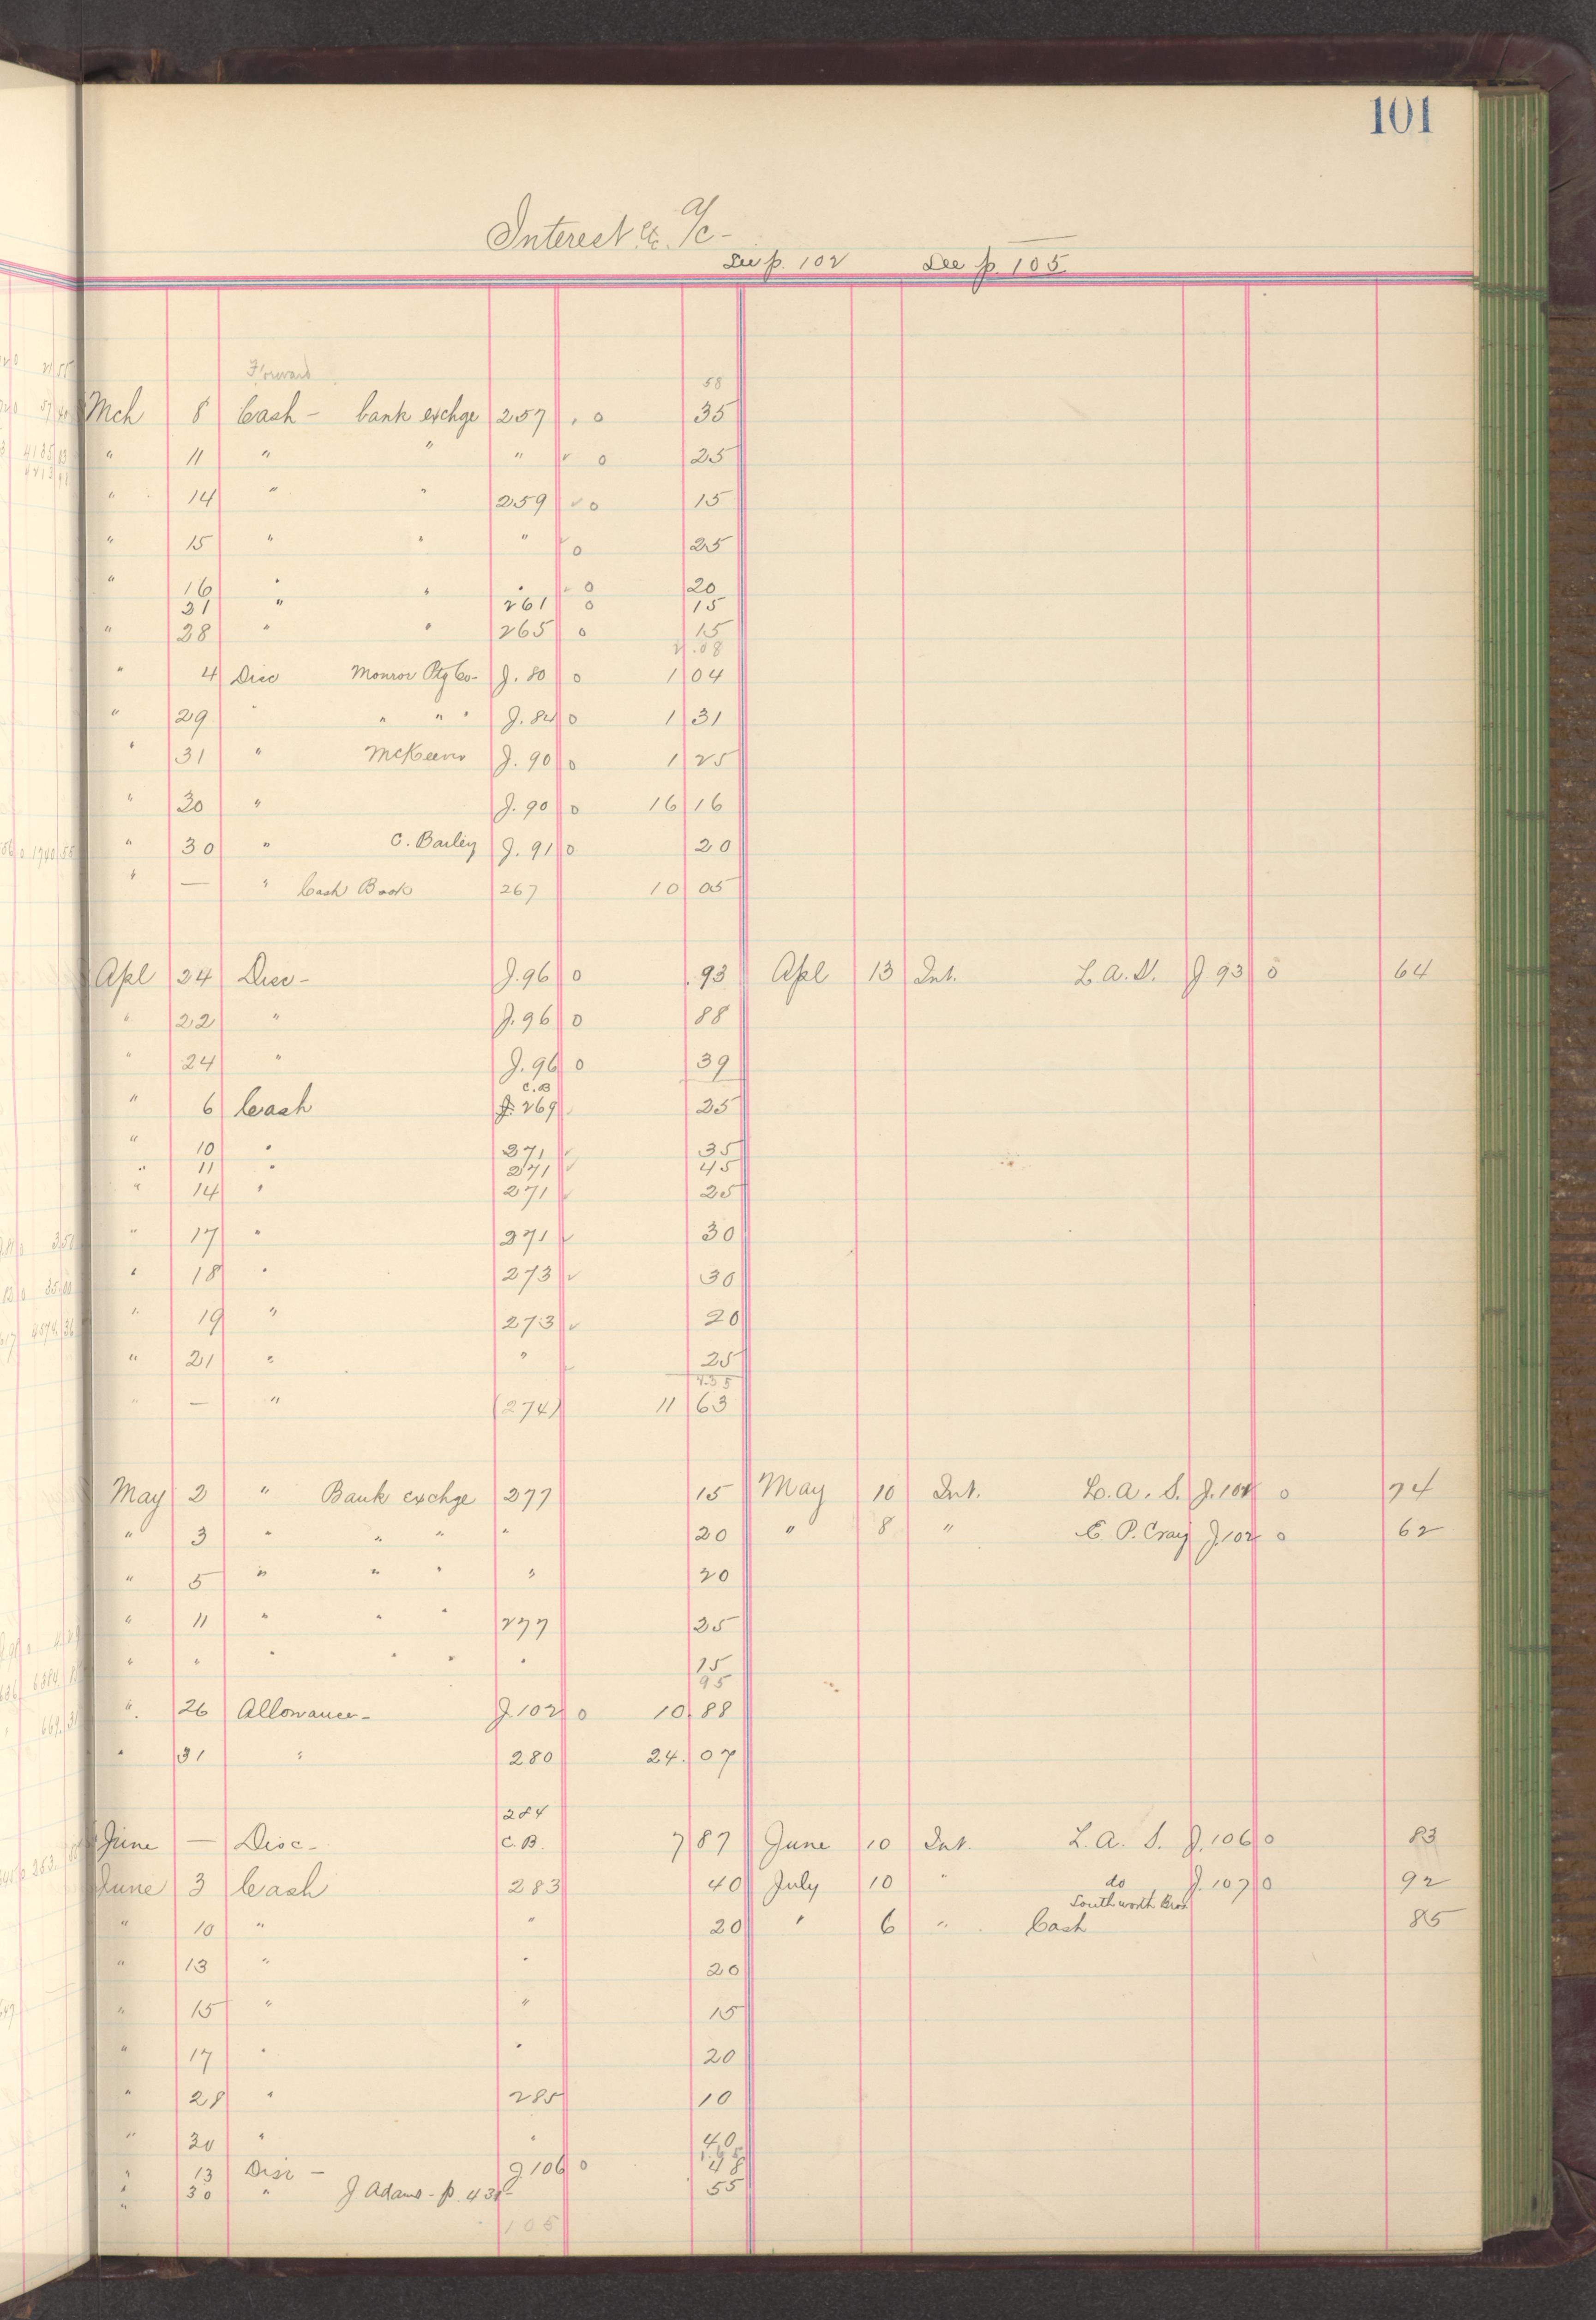 101
Interest &c. a/c -
See p. 102 See p. 105
Forward 58
Mch 8 Cash - bank exchge 257 0 35
" 11 " " " 0 25
" 14 " " 259 0 15
" 15 " " " 0 25
" 16 " " " 0 20
21 " " 261 0 15
" 28 " " 265 0 15
2.08
" 4 Disc Monroe Ptg Co- J. 80 0 1 04
" 29 " " " " J. 84 0 1 31
" 31 " McKeens J. 90 0 1 25
" 30 " J. 90 0 16 16
" 30 " C. Bailey J. 91 0 20
" — " Cash Book 267 10 05
Apl 24 Disc- J. 96 0 .93 Apl 13 Int. L.A.S. J 93 0 64
" 22 " J. 96 0 88
" 24 " J. 96 0 39
C.B
" 6 Cash J. 269 25
" 10 " 271 ✓ 35
" 11 " 271 ✓ 45
" 14 " 271 ✓ 25
" 17 " 271 ✓ 30
" 18 " 273 ✓ 30
" 19 " 273 ✓ 20
" 21 " " ✓ 25
4.35
" — " (274) 11 63
May 2 " Bank exchge 277 15 May 10 Int. L.A.S. J. 101 0 74
" 3 " " " " 20 " 8 " C. P. Cray J. 102 0 62
" 5 " " " " 20
" 11 " " " 277 25
" " " " " " 15
95
" 26 Allowance- J. 102 0 10.88
" 31 " 280 24.07
284
June — Disc- C.B. 7 87 June 10 Int. L.A.S. J. 106 0 83
June 3 Cash 283 40 July 10 " do J. 107 0 92
Southworth Bros
" 10 " " 20 " 6 " Cash 85
" 13 " " 20
" 15 " " 15
" 17 " " 20
" 28 " 285 10
" 30 " " 40
1.65
" 13 Disc - J 106 0 48
" 30 " J Adams - p. 431- 55
"
105